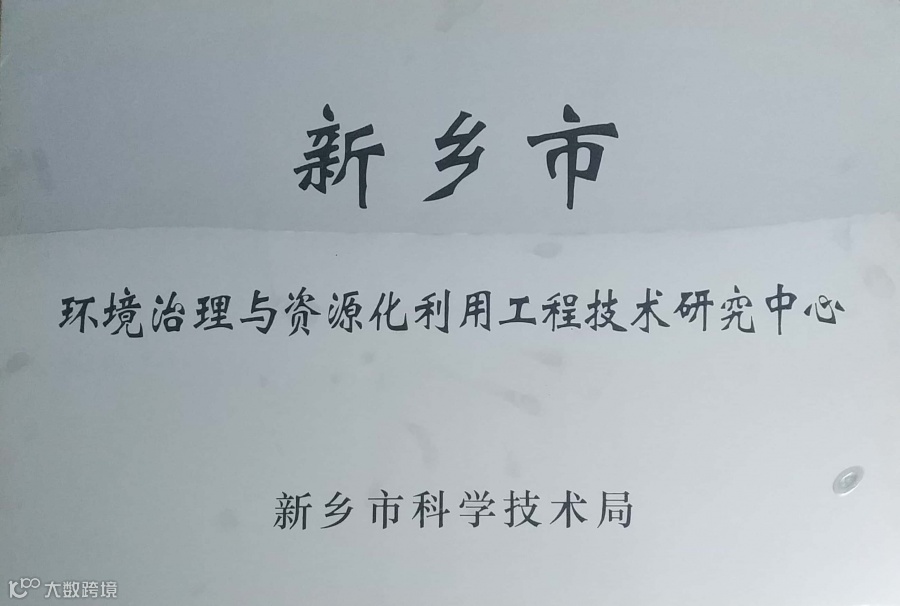 新乡市
环境治理与资源化利用工程技术研究中心
新乡市科学技术局
大数跨境